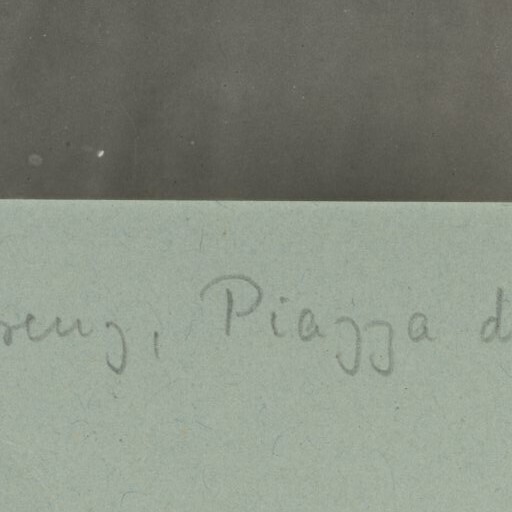 renz, Piazza d